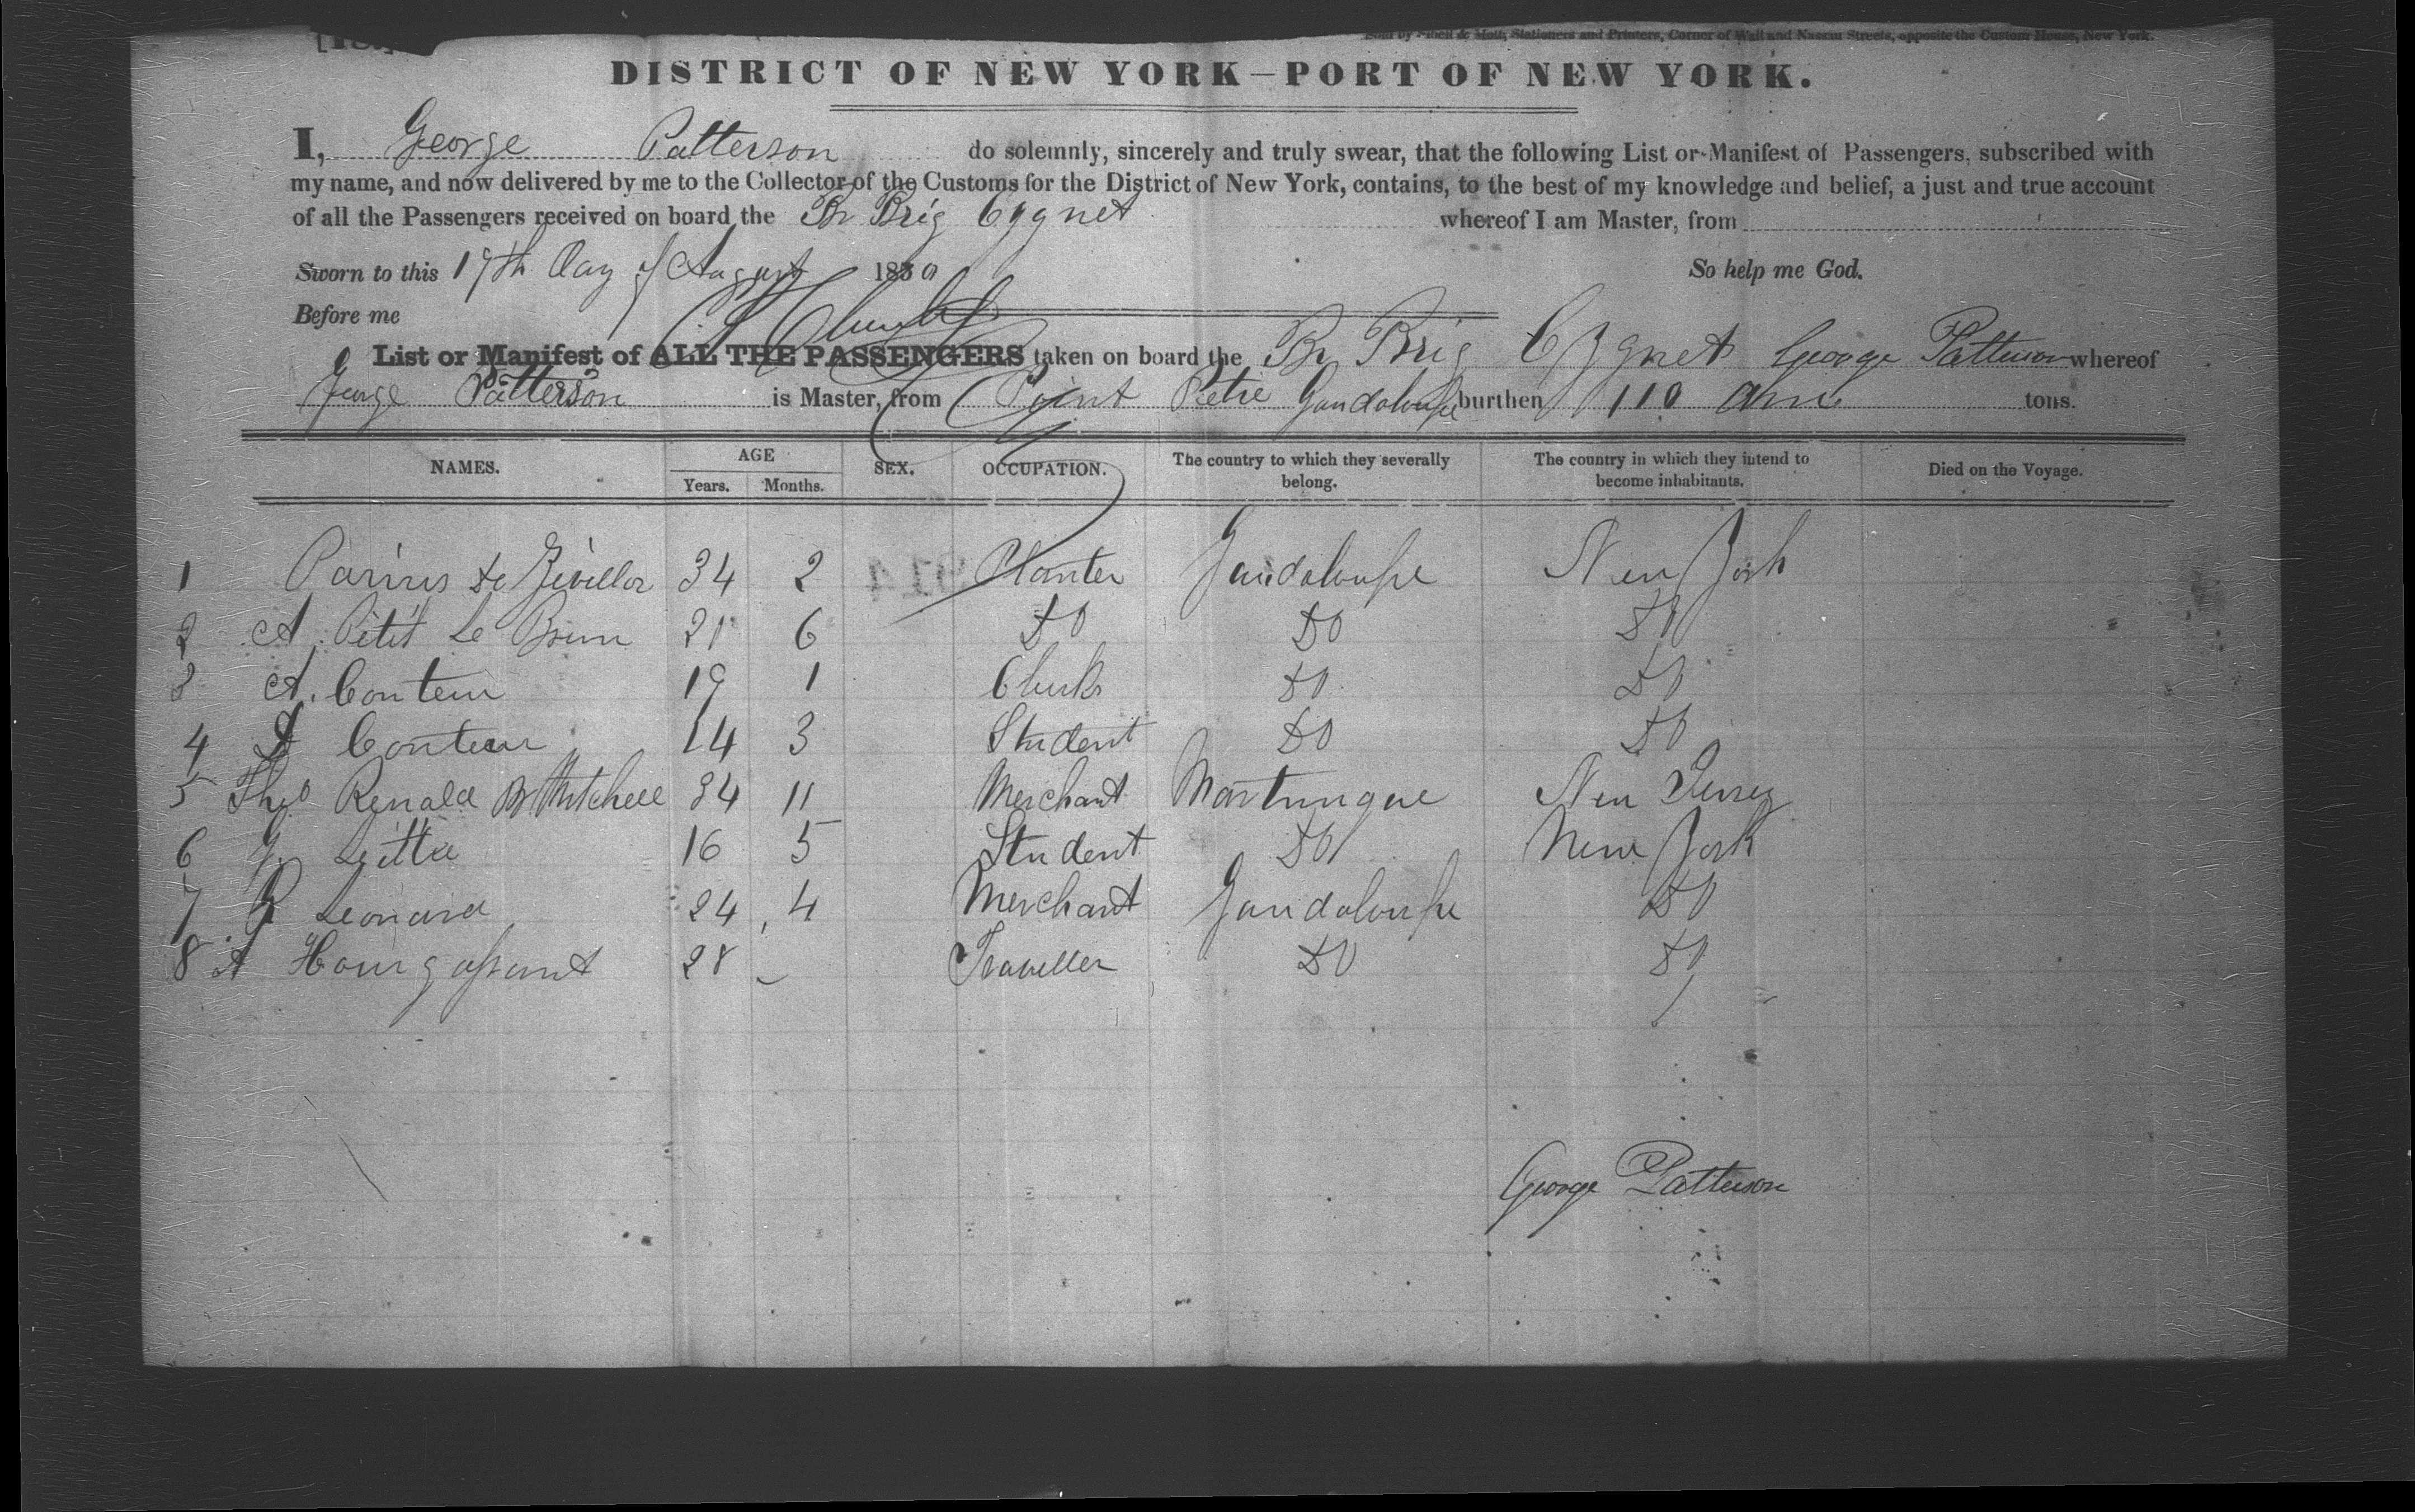 Sold by Elliott & Mott, Stationers and Printers, Corner of Wall and Nassau Streets, opposite the Custom House, New York.
DISTRICT OF NEW YORK—PORT OF NEW YORK.
I, George Patterson do solemnly, sincerely and truly swear, that the following List or Manifest of Passengers, subscribed with
my name, and now delivered by me to the Collector of the Customs for the District of New York, contains, to the best of my knowledge and belief, a just and true account
of all the Passengers received on board the Br Brig Cygnet whereof I am Master, from
Sworn to this 19th Day of August 183 So help me God.
Before me
List or Manifest of ALL THE PASSENGERS taken on board the Br Brig Cygnet George Patterson whereof
George Patterson is Master, from Point Petre Gaudaloupe burthen 110 tons.
NAMES. AGE Years. Months. SEX. OCCUPATION. The country to which they severally belong. The country in which they intend to become inhabitants. Died on the Voyage.
1 34 2 Planter Gaudaloupe New York
2 A Petit Le Brun 21 6 Do Do Do
3 A. Conteur 19 1 Clerk Do Do
4 Conteur 14 3 Student Do Do
5 Renald Mitchell 34 11 Merchant Martinique New Jersey
6 16 5 Student Do New York
7 Leonard 24 4 Merchant Gaudaloupe Do
8 A 28 - Traveller Do Do
George Patterson